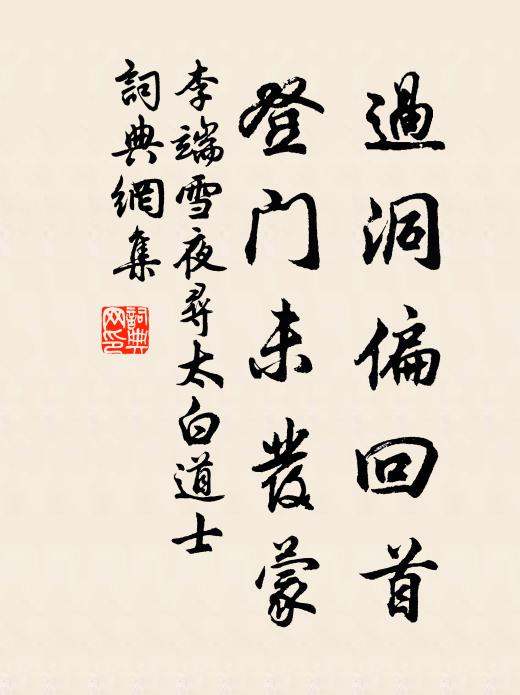 過洞偏回首
登门未發蒙
李端雪夜尋太白道士
詞典網集
詞典网印